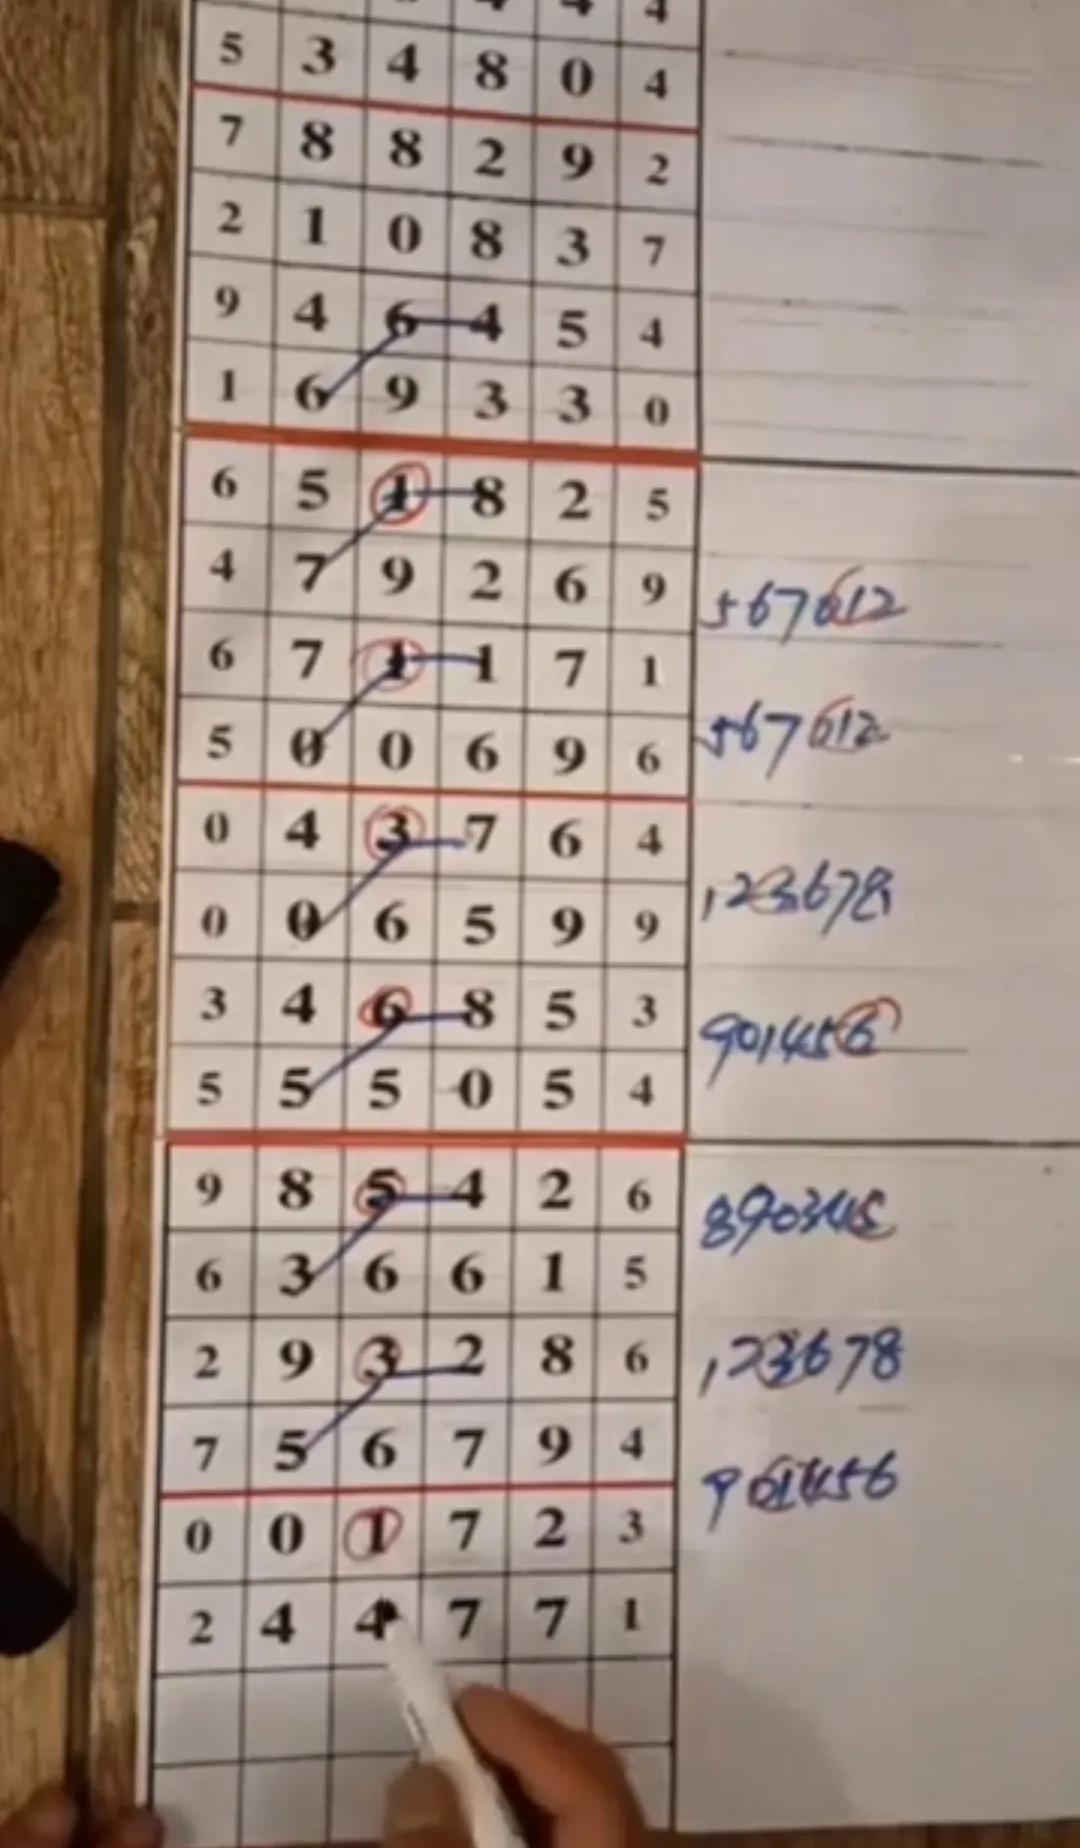 4 4 4
5 3 4 8 0 4
7 8 8 2 9 2
2 1 0 8 3 7
9 4 6 4 5 4
1 6 9 3 3 0
6 5 1 8 2 5
4 7 9 2 6 9
567012
6 7 1 1 7 1
5 0 0 6 9 6
567012
0 4 3 7 6 4
0 0 6 5 9 9
123678
3 4 6 8 5 3
901456
5 5 5 0 5 4
9 8 5 4 2 6
890345
6 3 6 6 1 5
2 9 3 2 8 6
123678
7 5 6 7 9 4
901456
0 0 1 7 2 3
2 4 4 7 7 1